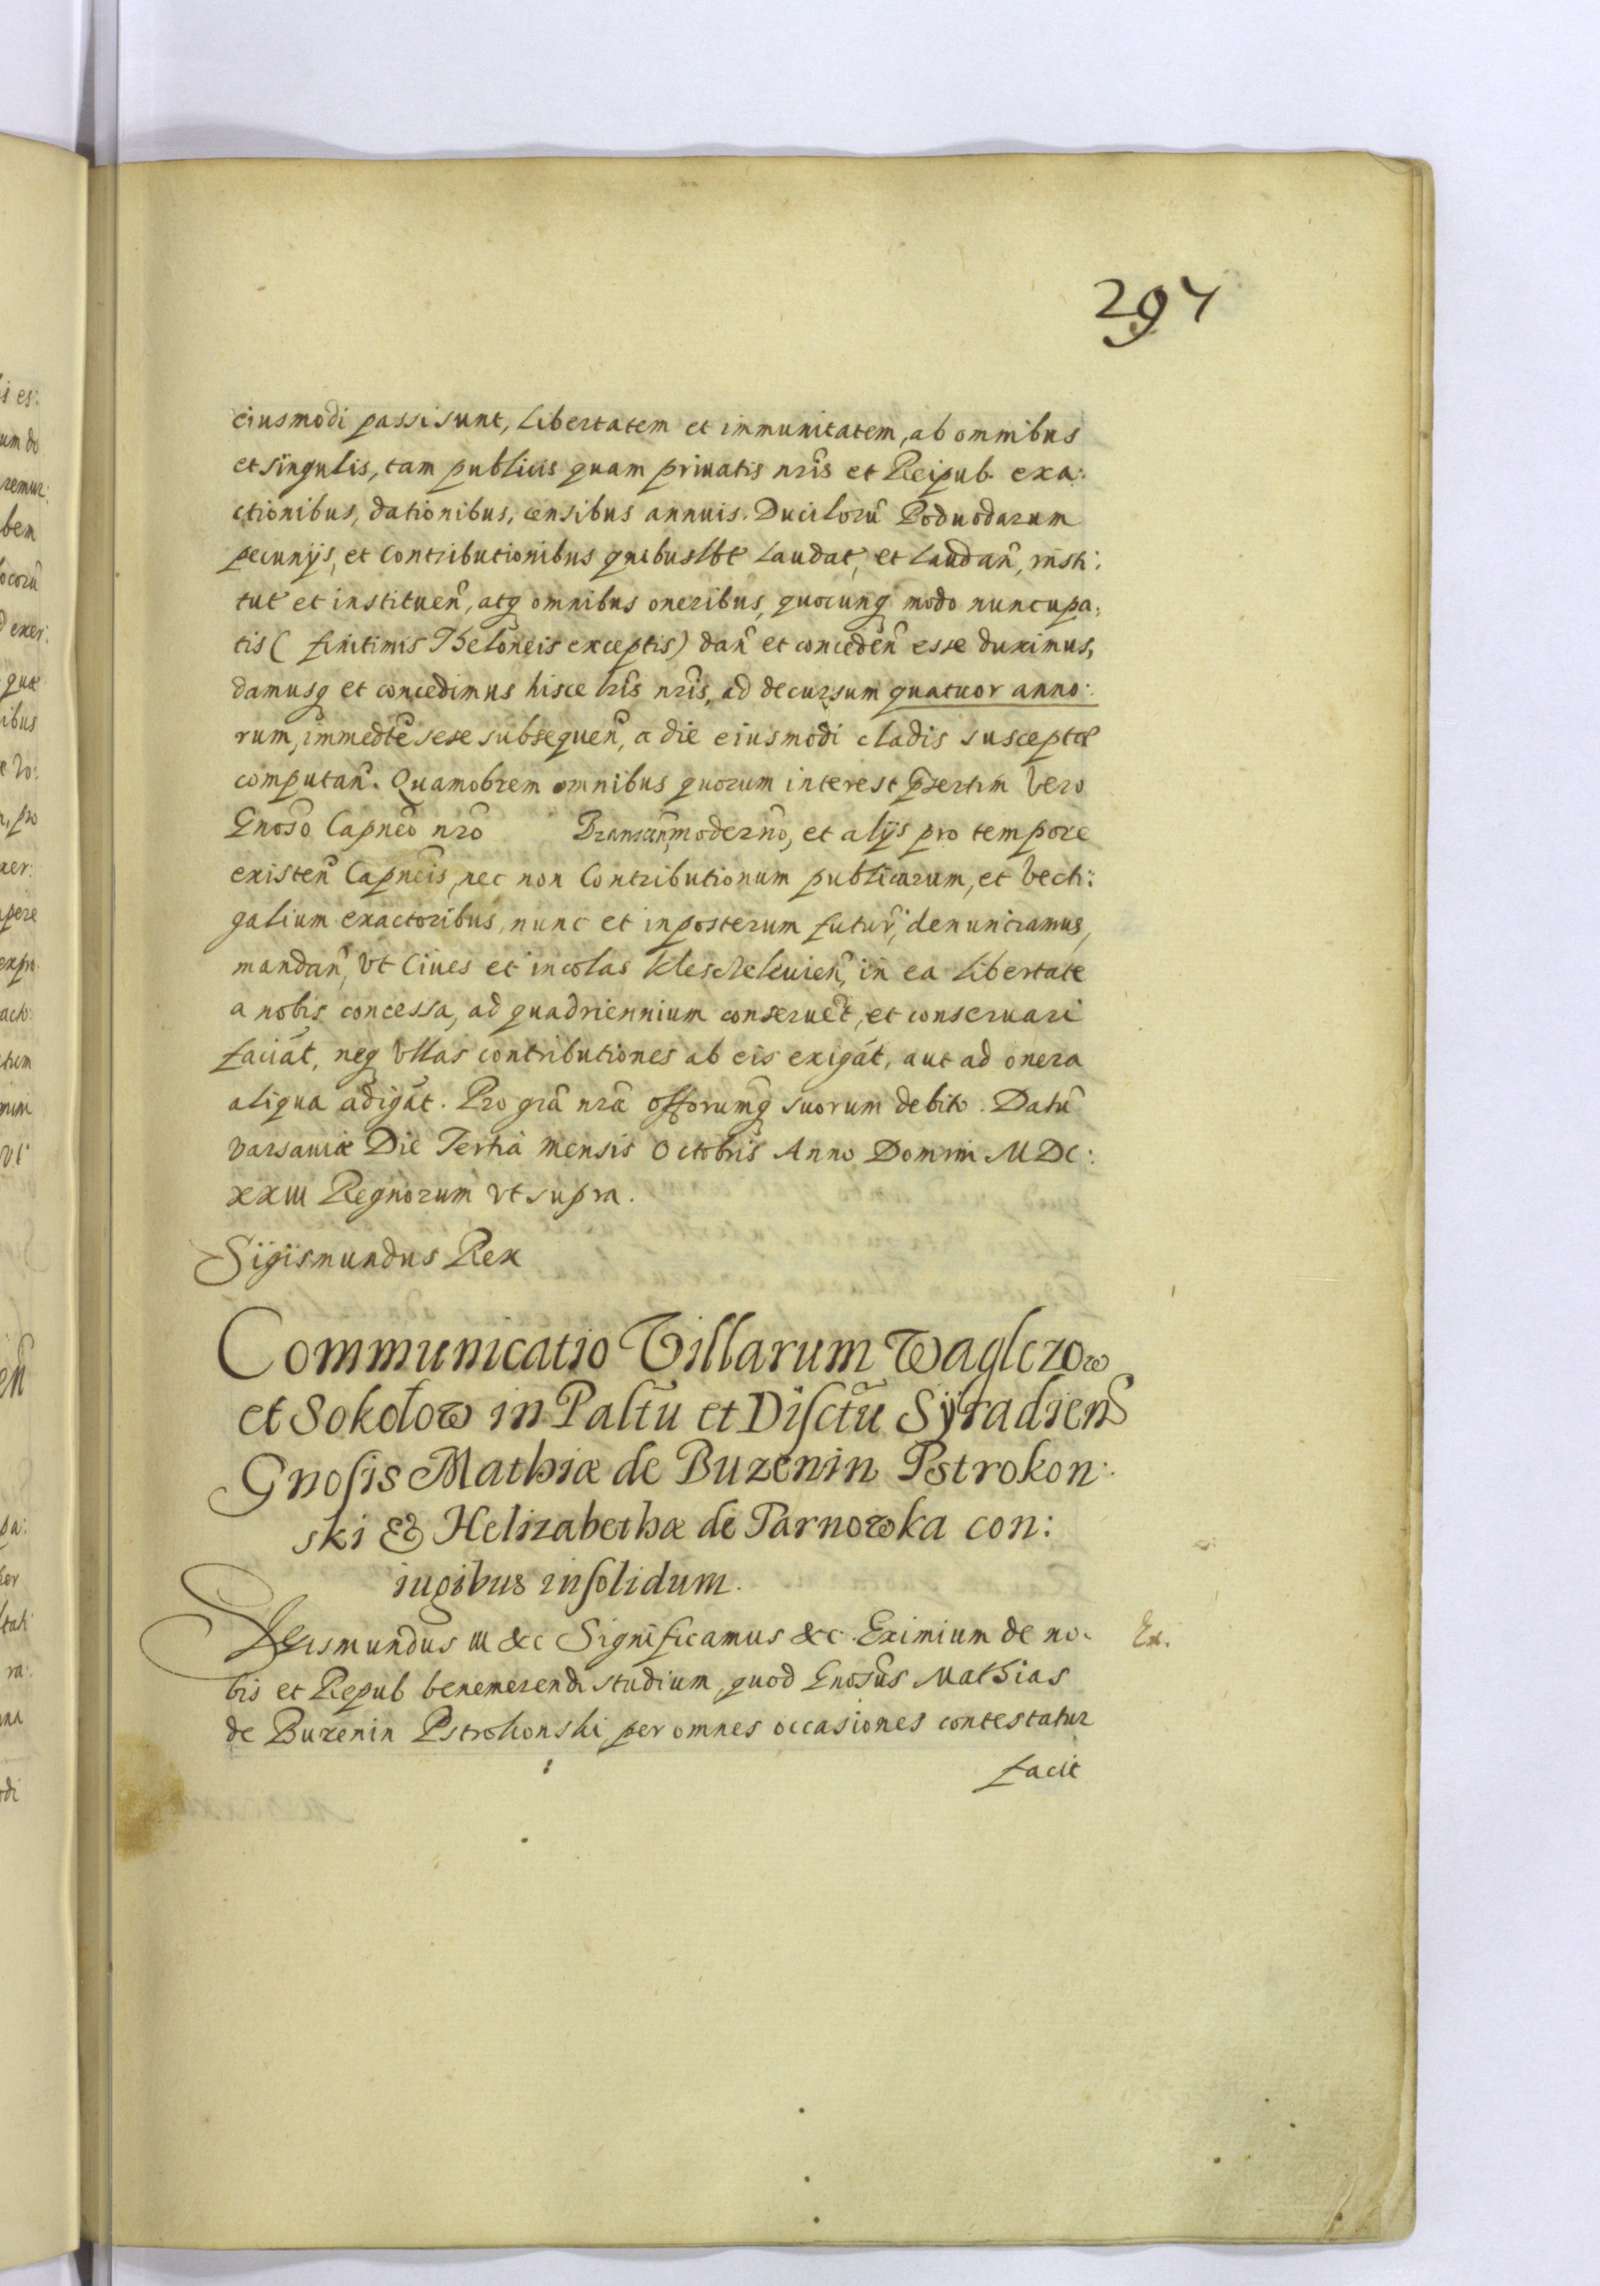 297
eiusmodi passi sunt, Libertatem et immunitatem, ab omnibus
et singulis, tam publicis quam priuatis nr̃is et Reipub. exa:
ctionibus, dationibus, censibus annuis. Ducilorũ Poduodarum
pecunijs, et Contributionibus quibuslbt Laudat, et Laudañ, insti:
tut et institueñ, atq omnibus oneribus, quocunq modo nuncupa:
tis ( finitimis Theloneis exceptis) dañ et concedeñ esse duximus,
damusq et concedimus hisce lr̃is nr̃is, ad decursum quatuor anno:
rum, immedte sese subsequeñ, a die eiusmodi cladis susceptæ
computañ. Quamobrem omnibus quorum interest p̃sertim vero
Gnoso Capneo nr̃o moderno, et alijs pro tempore
existeñ Capneis, nec non Contributionum publicarum, et vecti:
galium exactoribus, nunc et in posterum futur, denunciamus,
mandañ, vt Ciues et incolas in ea libertate
a nobis concessa, ad quadriennium conseruet, et conseruari
faciat, neq vllas contributiones ab eis exigat, aut ad onera
aliqua adigat. Pro gr̃a nr̃a offorumq suorum debito. Datũ
Varsauiæ Die Tertia Mensis Octobris Anno Domini MDC:
XXIII Regnorum vt supra.
Sigismundus Rex
Communicatio Villarum Waglczow
et Sokołow in Paltũ et Disctũ Syradien
Gnosis Mathiæ de Buzenin Pstrokon:
ski & Helizabethæ de Tarnowka con:
iugibus insolidum.
Sigismundus III &c Significamus &c. Eximium de no: Ex.
bis et Repub benemerendi studium, quod Gnosus Mathias
de Buzenin Pstrokonski per omnes occasiones contestatur
facit